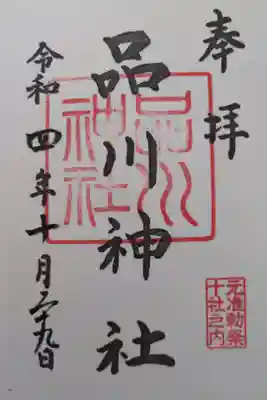 奉拝
品川神社
令和四年十月二十九日
品川
神社
元准勅祭
十社之内